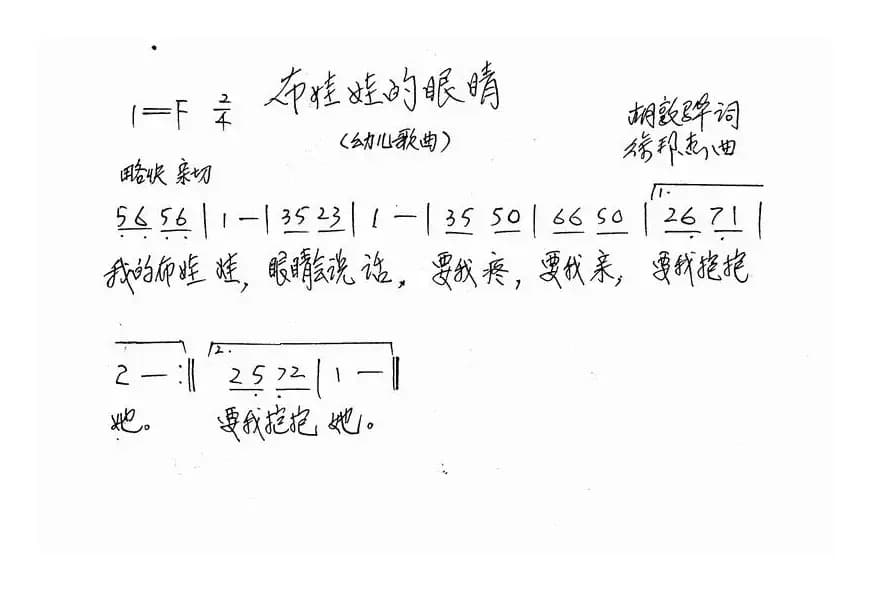 布娃娃的眼睛
1=F 2/4
(幼儿歌曲)
胡敦骅词
徐邦杰曲
略快 亲切
5̣6̣ 5̣6̣ | 1 — | 35 23 | 1 — | 35 50 | 66 50 | 1. 26̣ 7̣1 |
我的布娃娃，眼睛会说话，要我疼，要我亲，要我抱抱
2 — :‖ 2. 25̣ 7̣2 | 1 — ‖
她。 要我抱抱她。